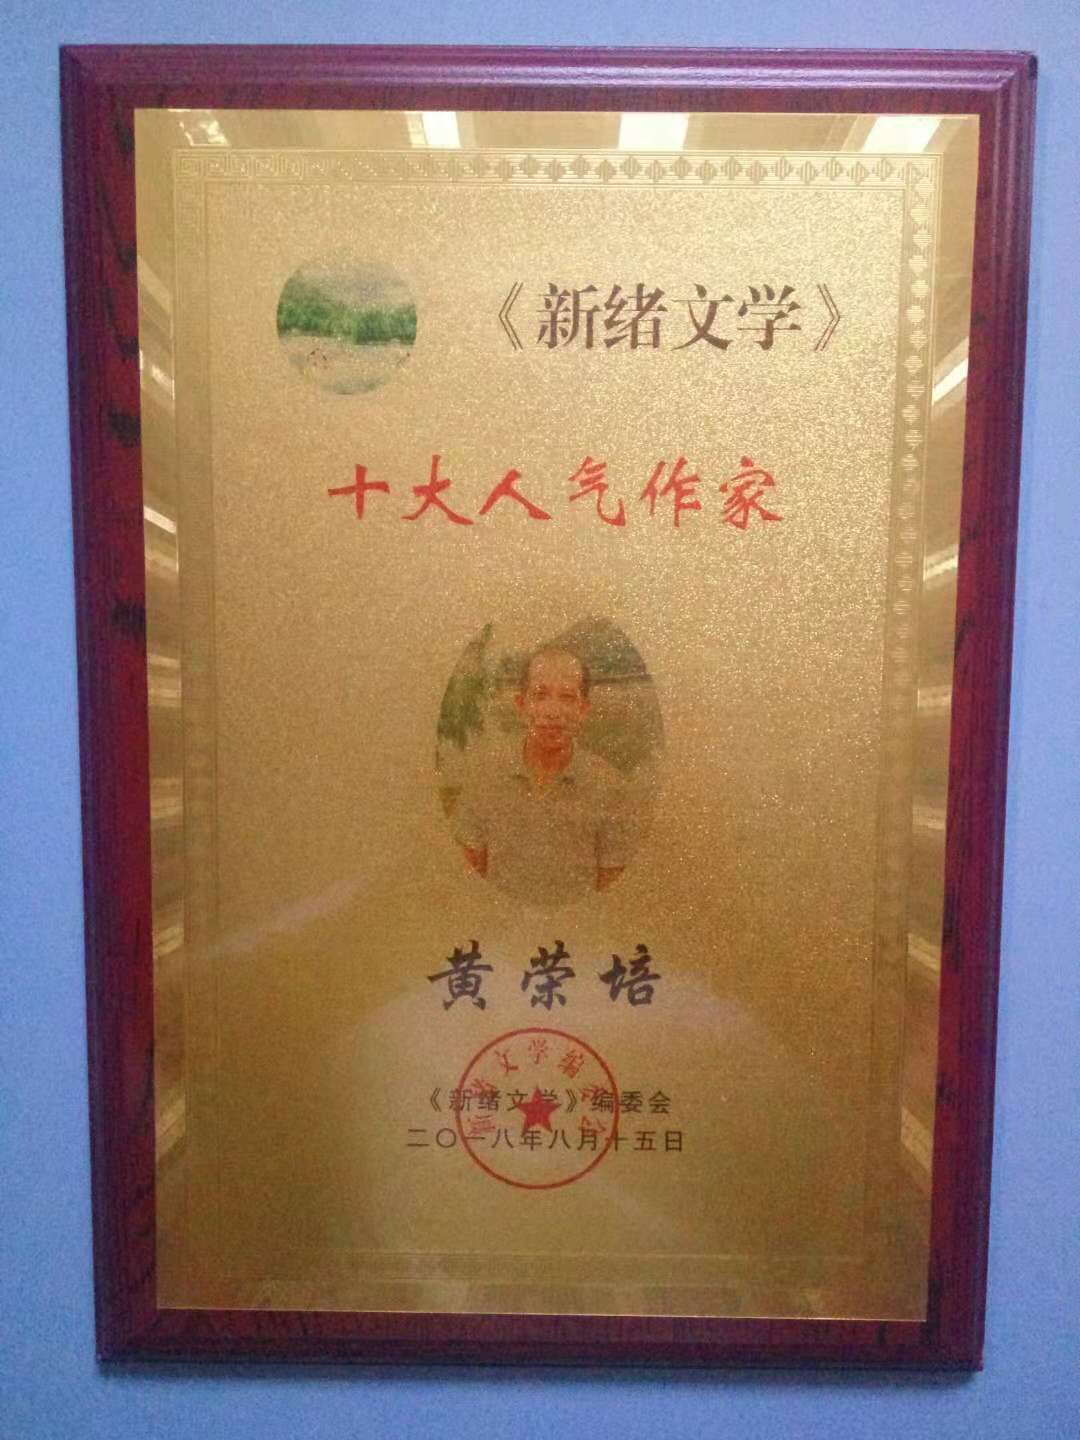 《新绪文学》
十大人气作家
黄荣培
新绪文学编委会
《新绪文学》编委会
二〇一八年八月十五日